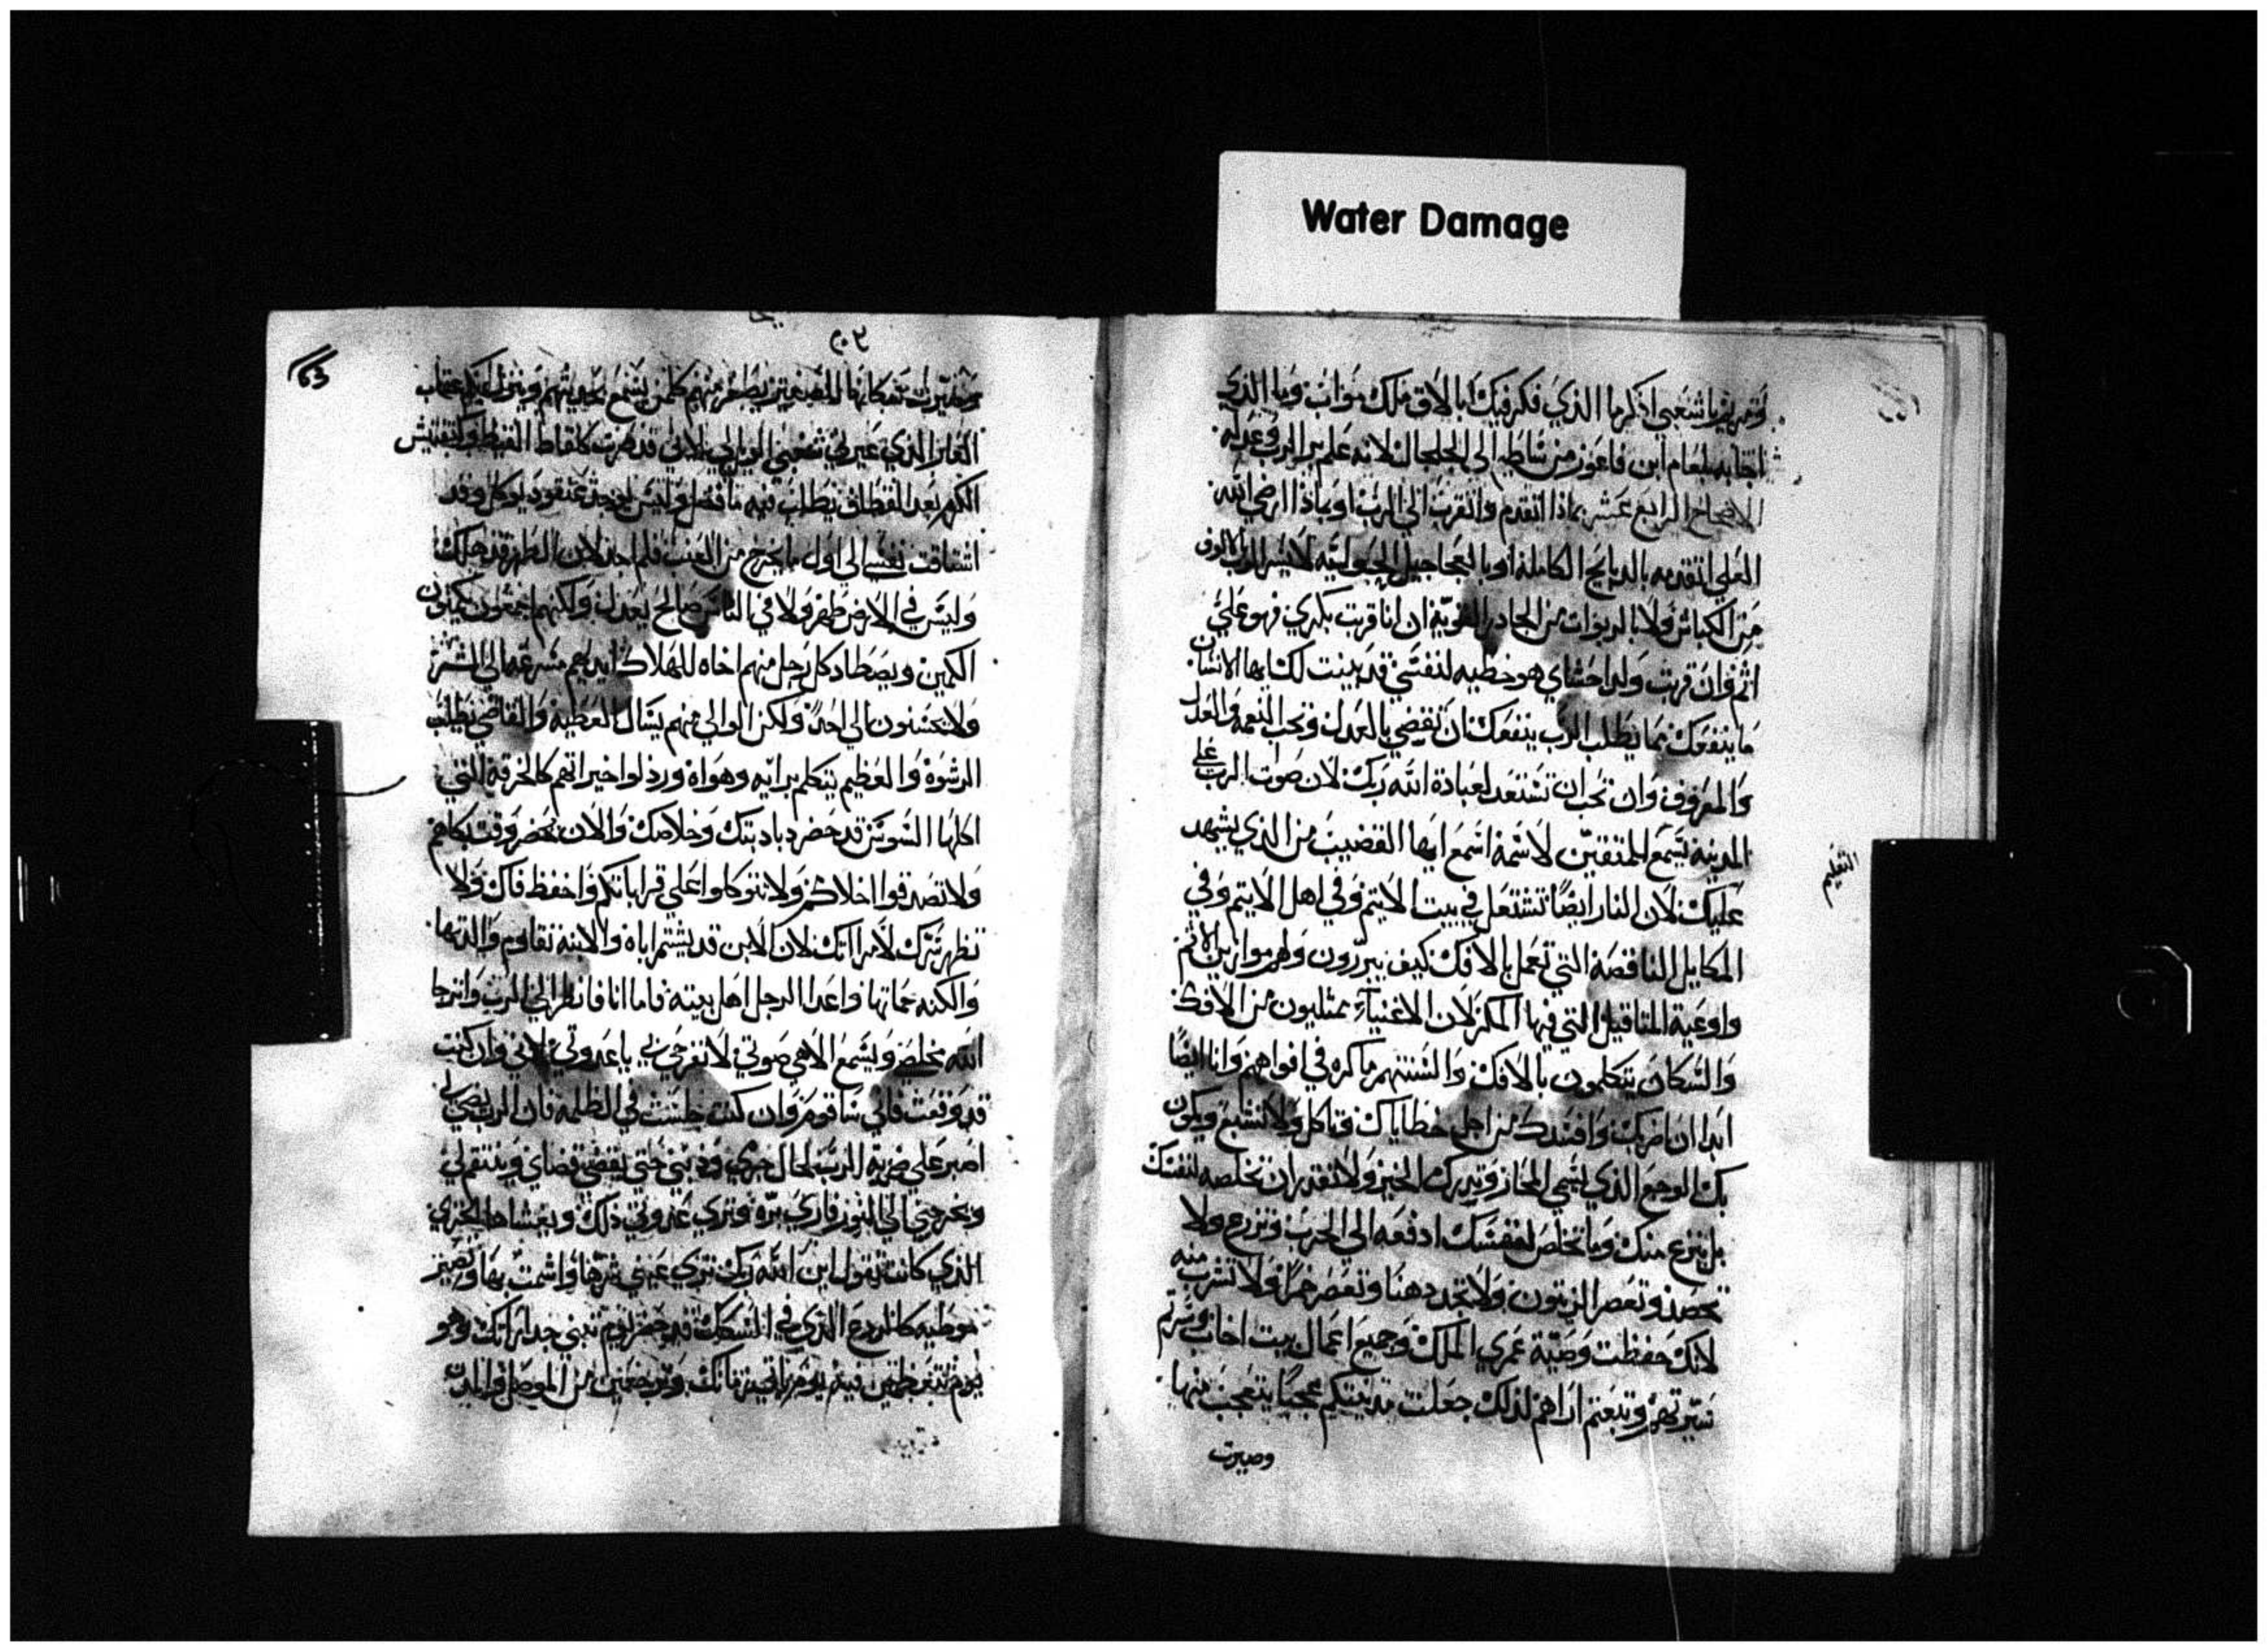 Water Damage
ومريم يا شعبي اذكر ما الذي فكر فيك ابالاق ملك مواب وما الذي
اجابه بلعام ابن فاعور من شاطيم الى الجلجال لانه علم بر الرب وعدله
الاصحاح الرابع عشر بماذا اتقدم واتقرب الى الرب او بماذا ارضي الله
العلي اتقدمه بالدبايح الكامله او بالعجاجيل الحوليه لا يسر الرب بالوف
من الكباش ولا بالربوات من الجادر القويه ان انا قربت بكري فهو علي
اثم وان قربت ولد احشاي هو خطيه لنفسي قد بينت لك ايها الانسان
ما ينفعك مما يطلب الرب ينفعك ان تقضي بالعدل وتحب النعمه والعدل
والمعروف وان تحب ان تستعد لعبادة الله ربك لان صوات الرب على
المدينه يسمع للمتقين لاسمه اسمع ايها القضيب من الذي يشهد
التعليم
عليك لان النار ايضًا تشتعل في بيت الايتم وفي اهل الايتم وفي
المكاييل الناقصة التي تعمل بالافك كيف يبررون ولهم موازين الاثم
واوعية المثاقيل التي فيها المكر لان الاغنياء ممتليون من الافك
والسكان يتكلمون بالافك والسنتهم ماكره في افواههم وانا ايضًا
ابدا ان اضربك وافسدك من اجل خطاياك فتاكل ولا تشبع ويكون
بك الوجع الذي يسمى المحاز وتدرك الخير ولا تقدر ان تخلصه لنفسك
بل ينزع منك وما تخلص لنفسك ادفعه الى الحرب وتزرع ولا
تحصد وتعصر الزيتون ولا تجد دهنا وتعصر خمرًا ولا تشرب منه
لانك حفظت وصية عمري الملك وجميع اعمال بيت اخاب وسرتم
سيرتهم وتبعتم اراهم لذلك جعلت مدينتكم عجبًا يتعجب منها
وصيرت
٢٠٢
63
وصيرت سكانها
الغابر الذي عير شعبي الويل لي لاني قد صرت كلقاط القيظ وكتفتيش
الكرم بعد القطاف يطلب فيه ما فضل وليس يوجد عنقود يوكل وقد
اشتاقت نفسي الى اول ما يخرج من العنب فلم اجد لان الطهر قد هلك
وليس في الارض طهر ولا في الناس صالح يعدل ولكنهم اجمعون يكمنون
الكمين ويصطاد كل رجل منهم اخاه للهلاك ايديهم مسرعه الى الشر
ولا يحسنون الى احد ولكن الوالي منهم يسال العطيه والقاضي يطلب
الرشوة والعظيم يتكلم برايه وهواه ورذلوا خيراتهم كالخرقه التي
اكلها السوس قد حضر دبادبتك وخلاصك والان يحضر وقت بكاهم
ولا تصدقوا اخلاكم ولا تتوكلوا على قراباتكم واحفظ فاك ولا
تظهر سرك لامراتك لان الابن قد يشتم اباه والابنه تقاوم والدتها
والكنه حماتها واعدا الرجل اهل بيته فاما انا فانظر الى الرب وارجا
الله مخلصي ويسمع الاهي صوتي لا تفرحي بي يا عدوتي لاني وان كنت
قد وقعت فاني ساقوم وان كنت جلست في الظلمه فان الرب يضي لي
اصبر على ضربة الرب لحال جرمي وذنبي حتى يقضي قضاي وينتقم لي
ويخرجني الى النور فارى بره وترى عدوتي ذلك ويغشاها الخزي
الذي كانت تقول اين الله ربك ترى عيني شرها واشمت بها وتصير
موطيه كالردع الذي في السكك قد حضر يوم تبني جداراتك وهو